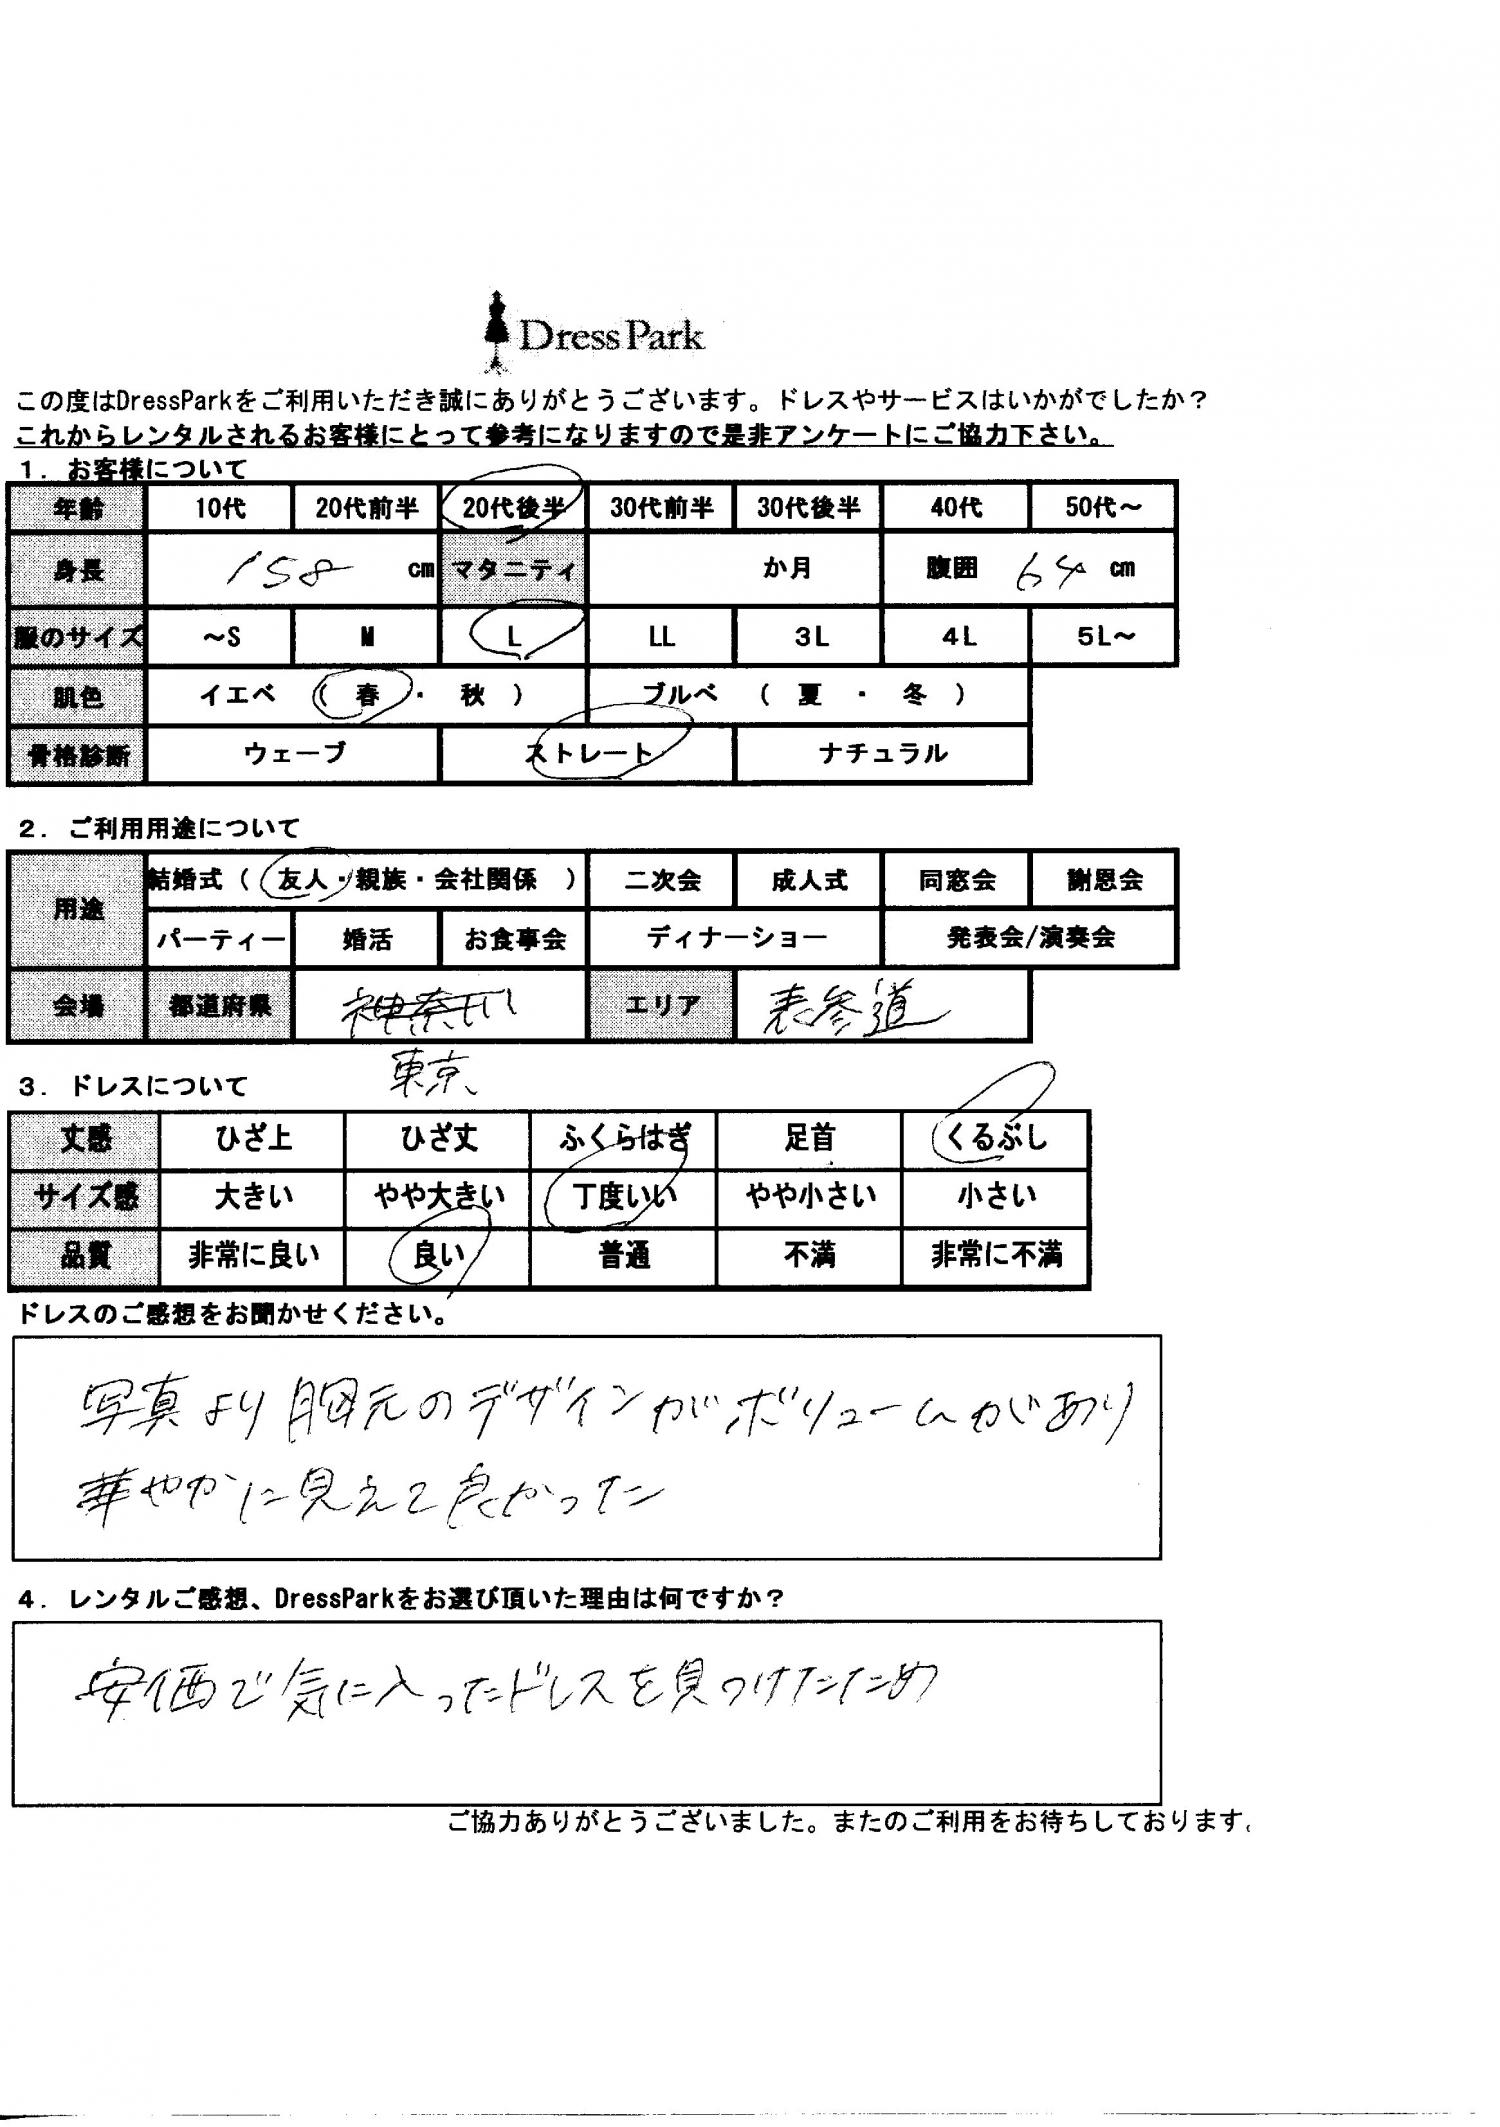 Dress Park
この度はDressParkをご利用いただき誠にありがとうございます。ドレスやサービスはいかがでしたか？
これからレンタルされるお客様にとって参考になりますので是非アンケートにご協力下さい。
１．お客様について
年齢 10代 20代前半 20代後半 30代前半 30代後半 40代 50代～
身長 158 cm マタニティ か月 腹囲 64 cm
服のサイズ ～S M L LL 3L 4L 5L～
肌色 イエベ （ 春 ・ 秋 ） ブルベ （ 夏 ・ 冬 ）
骨格診断 ウェーブ ストレート ナチュラル
２．ご利用用途について
用途 結婚式（ 友人・親族・会社関係 ） 二次会 成人式 同窓会 謝恩会
パーティー 婚活 お食事会 ディナーショー 発表会/演奏会
会場 都道府県 神奈川 エリア 表参道
東京
３．ドレスについて
丈感 ひざ上 ひざ丈 ふくらはぎ 足首 くるぶし
サイズ感 大きい やや大きい 丁度いい やや小さい 小さい
品質 非常に良い 良い 普通 不満 非常に不満
ドレスのご感想をお聞かせください。
写真より胸元のデザインがボリュームがあり
華やかに見えて良かった
４．レンタルご感想、DressParkをお選び頂いた理由は何ですか？
安価で気に入ったドレスを見つけたため
ご協力ありがとうございました。またのご利用をお待ちしております。